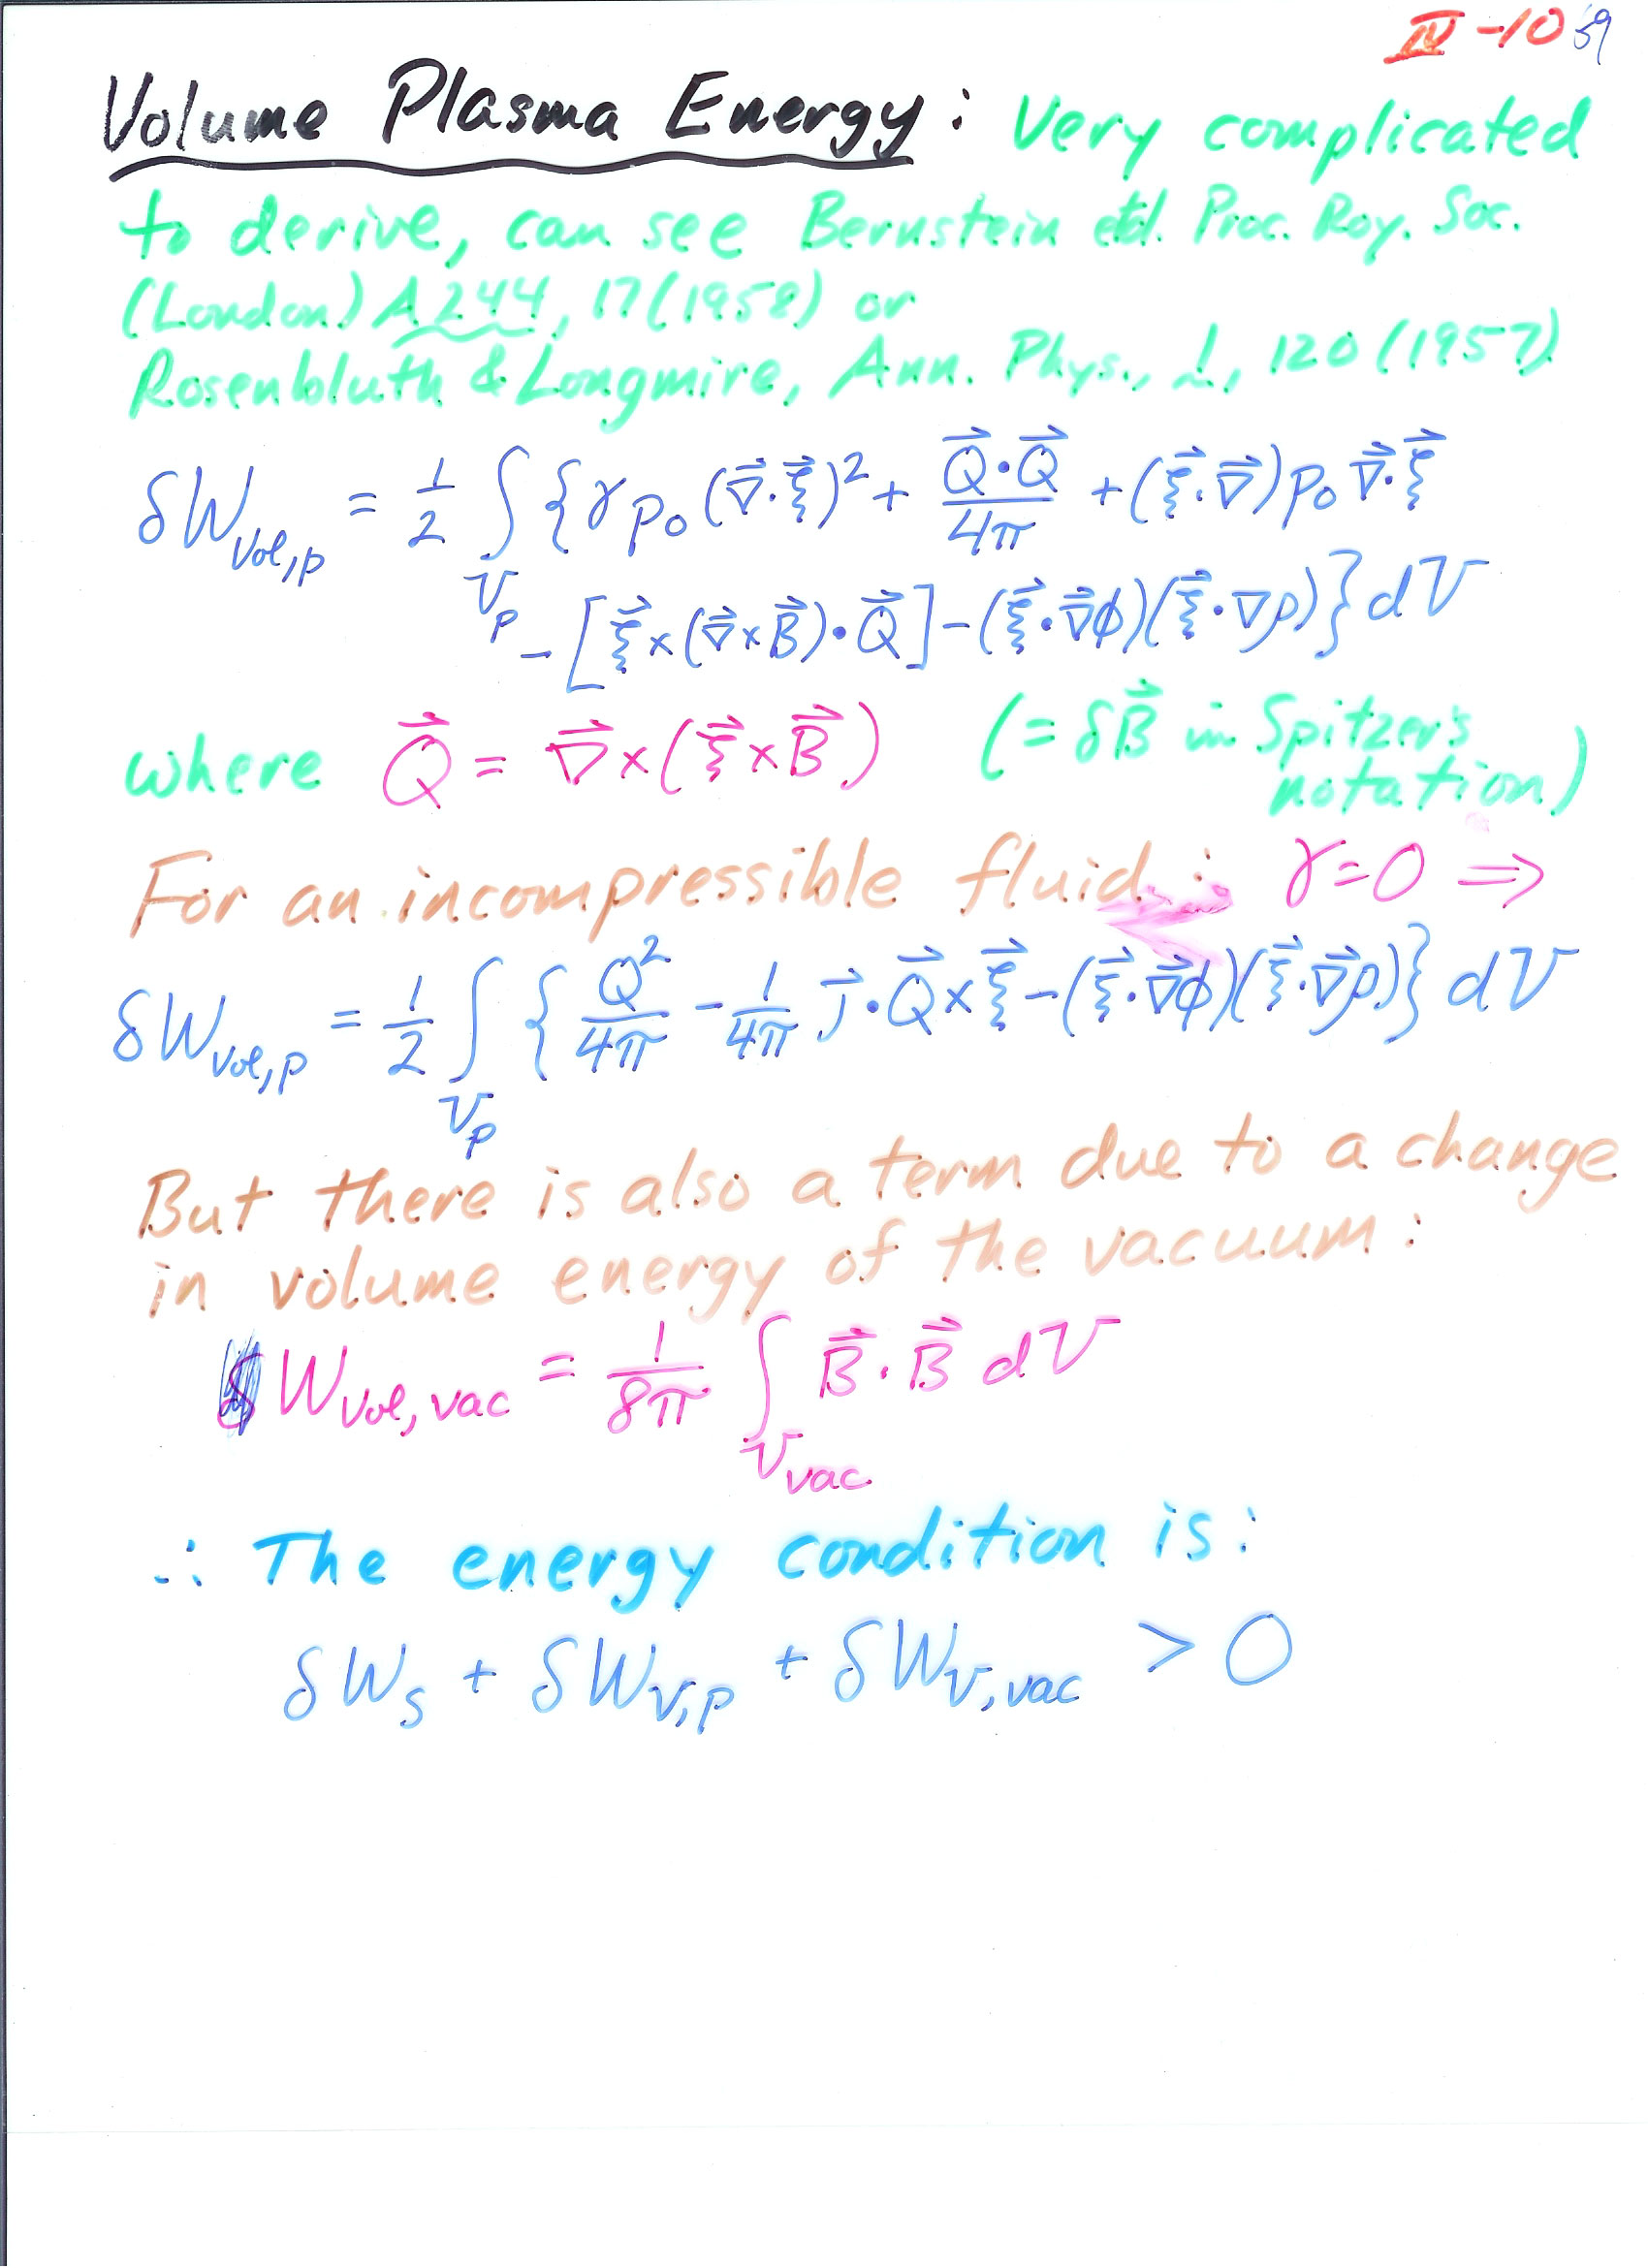 IV-10 59
Volume Plasma Energy: Very complicated
to derive, can see Bernstein et al. Proc. Roy. Soc.
(London) A244, 17 (1958) or
Rosenbluth & Longmire, Ann. Phys., 1, 120 (1957)
δW_{Vol,p} = 1/2 ∫_{V_p} {γp₀(∇⃗·ξ⃗)² + Q⃗·Q⃗/4π + (ξ⃗·∇⃗)p₀ ∇⃗·ξ⃗
− [ξ⃗×(∇⃗×B⃗)·Q⃗] − (ξ⃗·∇⃗φ)(ξ⃗·∇ρ)} dV
where Q⃗ = ∇⃗×(ξ⃗×B⃗) (= δB⃗ in Spitzer's
notation)
For an incompressible fluid: γ=0 ⇒
δW_{Vol,p} = 1/2 ∫_{V_p} {Q²/4π − 1/4π J⃗·Q⃗×ξ⃗ − (ξ⃗·∇⃗φ)(ξ⃗·∇⃗ρ)} dV
But there is also a term due to a change
in volume energy of the vacuum:
W_{Vol,vac} = 1/8π ∫_{V_vac} B⃗·B⃗ dV
∴ The energy condition is:
δW_S + δW_{V,p} + δW_{V,vac} > 0